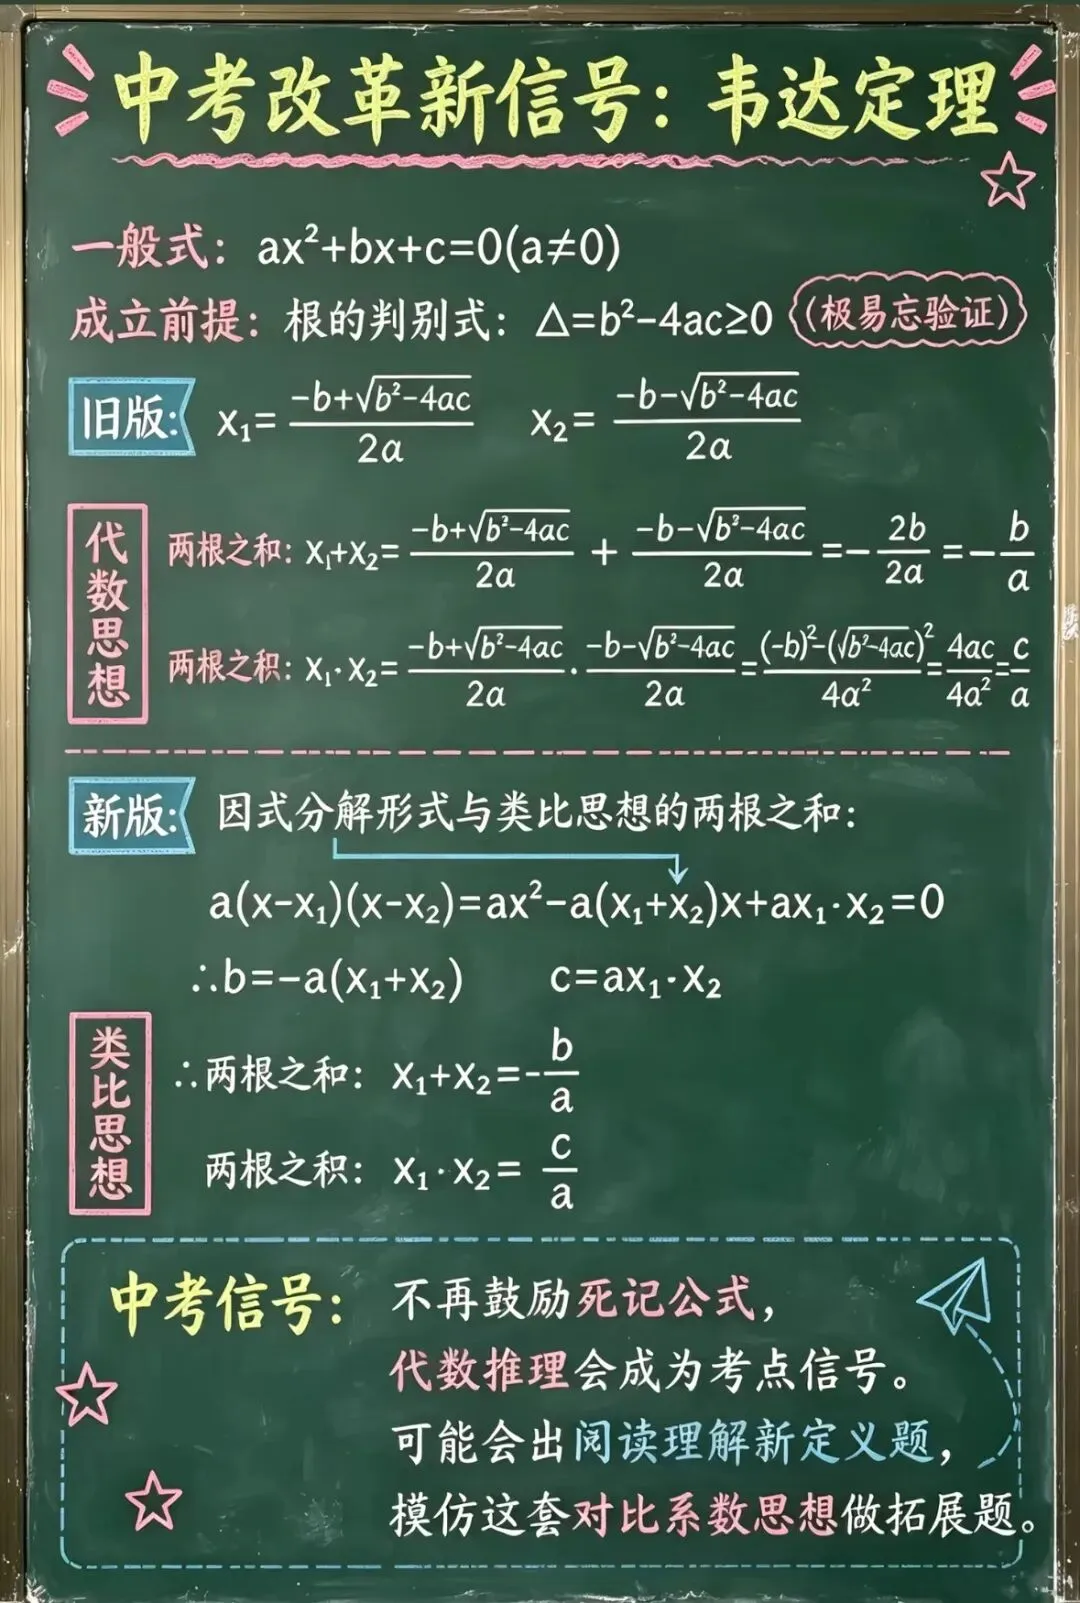 中考改革新信号：韦达定理
一般式：ax²+bx+c=0(a≠0)
成立前提：根的判别式：△=b²-4ac≥0（极易忘验证）
旧版：x₁=(-b+√(b²-4ac))/2a x₂=(-b-√(b²-4ac))/2a
代数思想
两根之和：x₁+x₂=(-b+√(b²-4ac))/2a + (-b-√(b²-4ac))/2a =-2b/2a =-b/a
两根之积：x₁·x₂=(-b+√(b²-4ac))/2a · (-b-√(b²-4ac))/2a =((-b)²-(√(b²-4ac))²)/4a² =4ac/4a² =c/a
新版：因式分解形式与类比思想的两根之和：
a(x-x₁)(x-x₂)=ax²-a(x₁+x₂)x+ax₁·x₂=0
∴b=-a(x₁+x₂) c=ax₁·x₂
类比思想
∴两根之和：x₁+x₂=-b/a
两根之积：x₁·x₂=c/a
中考信号：不再鼓励死记公式，
代数推理会成为考点信号。
可能会出阅读理解新定义题，
模仿这套对比系数思想做拓展题。